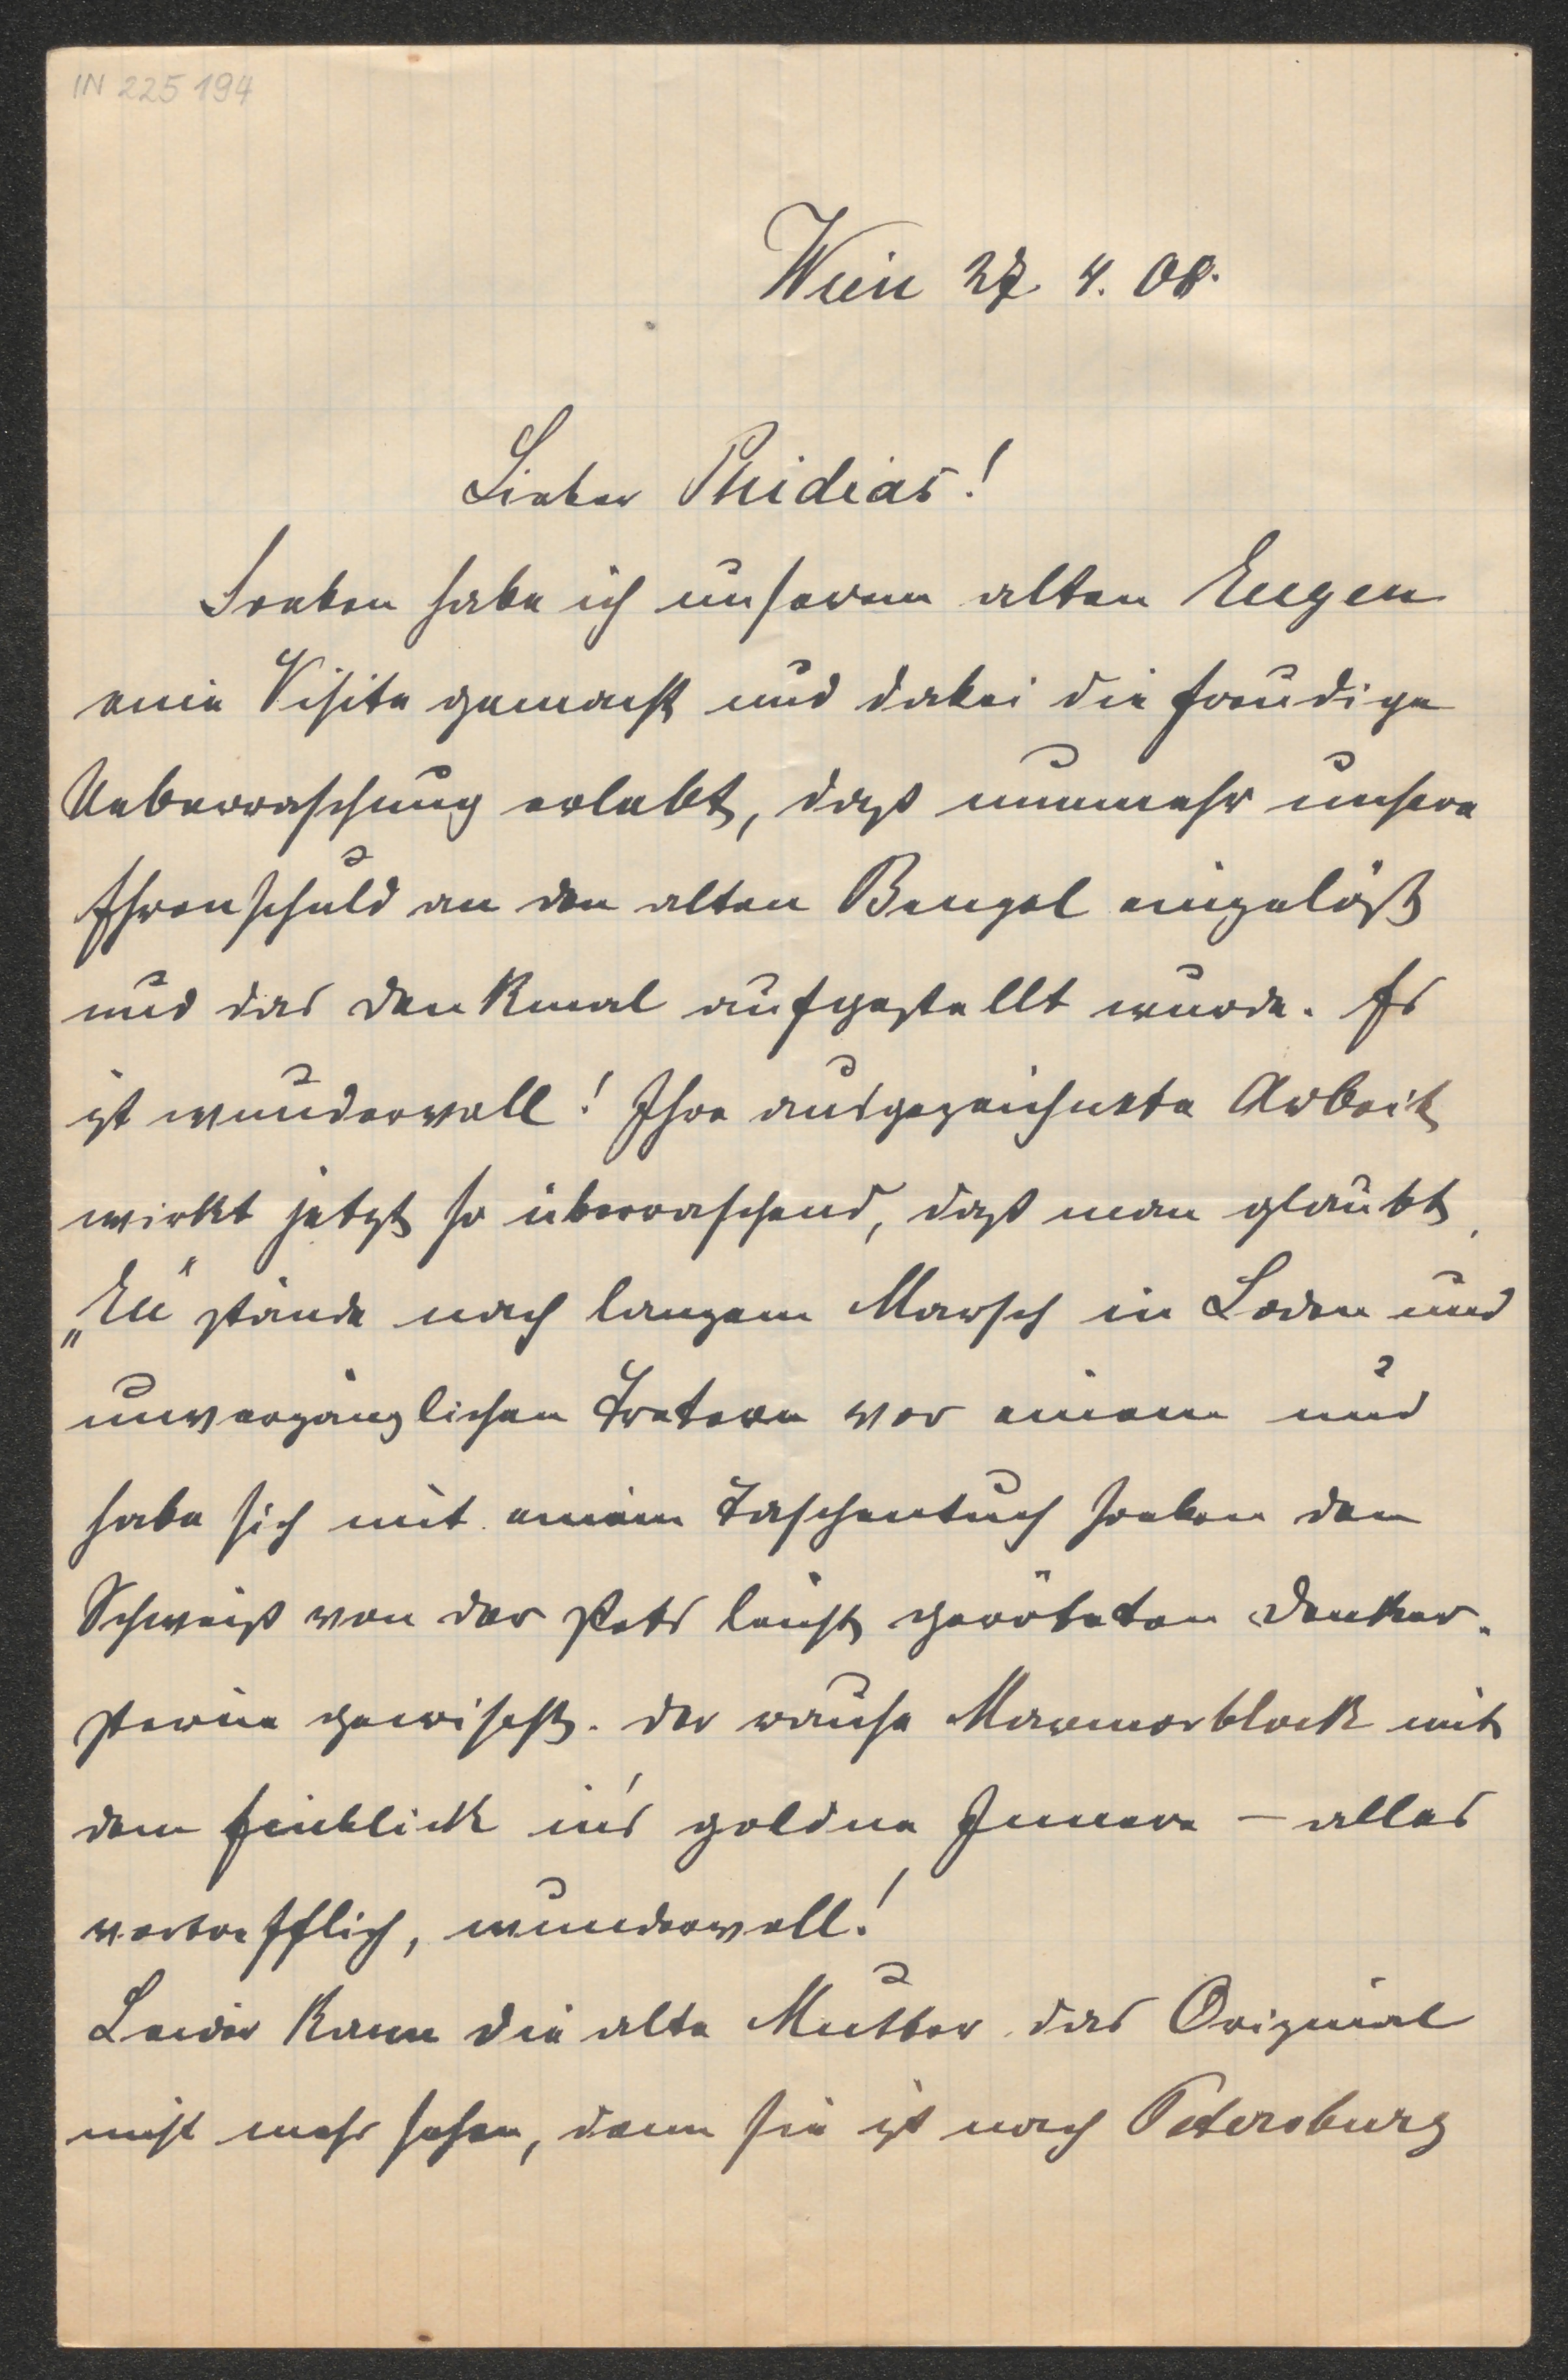 IN 225 194
Wien 27. 4. 08.
Lieber Phidias!
Soeben habe ich unserem alten Eugen
eine Visite gemacht und dabei die freudige
Ueberraschung erlebt, daß nunmehr unsere
Ehrenschuld an den alten Bengel eingelöst
und das Denkmal aufgestellt wurde. Es
ist wundervoll! Ihre ausgezeichnete Arbeit
wirkt jetzt so überraschend, daß man glaubt,
„Eu" stände nach langem Marsch in Loden und
unvergänglichen Tretern vor einem und
habe sich mit einem Taschentuch soeben den
Schweiß von der stets leicht geröteten Denker-
stirne gewischt. Der rauhe Marmorblock mit
dem Einblick in's goldne Innere – alles
vortrefflich, wundervoll!
Leider kann die alte Mutter das Original
nicht mehr sehen, denn sie ist nach Petersburg